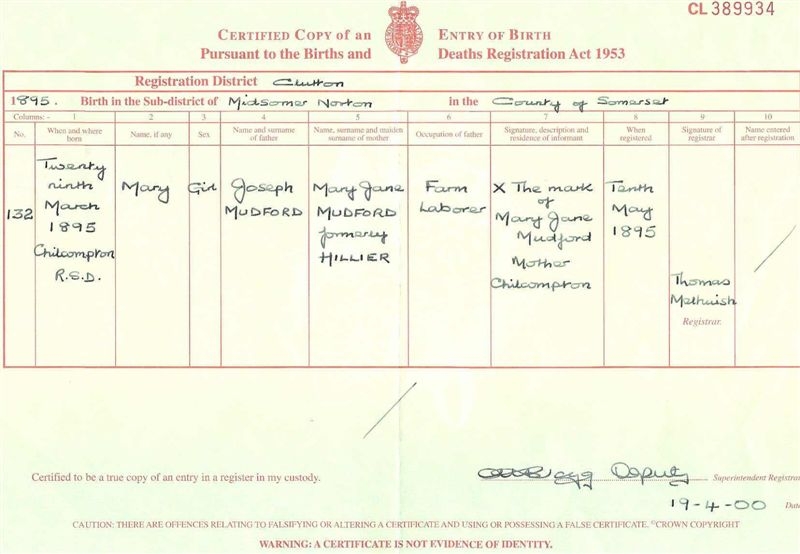 CL 389934
CERTIFIED COPY of an ENTRY OF BIRTH
Pursuant to the Births and Deaths Registration Act 1953
Registration District Clutton
1895. Birth in the Sub-district of Midsomer Norton in the County of Somerset
Columns:- 1 2 3 4 5 6 7 8 9 10
No. When and where born Name, if any Sex Name and surname of father Name, surname and maiden surname of mother Occupation of father Signature, description and residence of informant When registered Signature of registrar Name entered after registration
132
Twenty
ninth
March
1895
Chilcompton
R.S.D.
Mary
Girl
Joseph
MUDFORD
Mary Jane
MUDFORD
formerly
HILLIER
Farm
Laborer
X The mark
of
Mary Jane
Mudford
Mother
Chilcompton
Tenth
May
1895
Thomas
Registrar.
Certified to be a true copy of an entry in a register in my custody.
Deputy Superintendent Registrar
19-4-00 Date
CAUTION: THERE ARE OFFENCES RELATING TO FALSIFYING OR ALTERING A CERTIFICATE AND USING OR POSSESSING A FALSE CERTIFICATE. ©CROWN COPYRIGHT
WARNING: A CERTIFICATE IS NOT EVIDENCE OF IDENTITY.